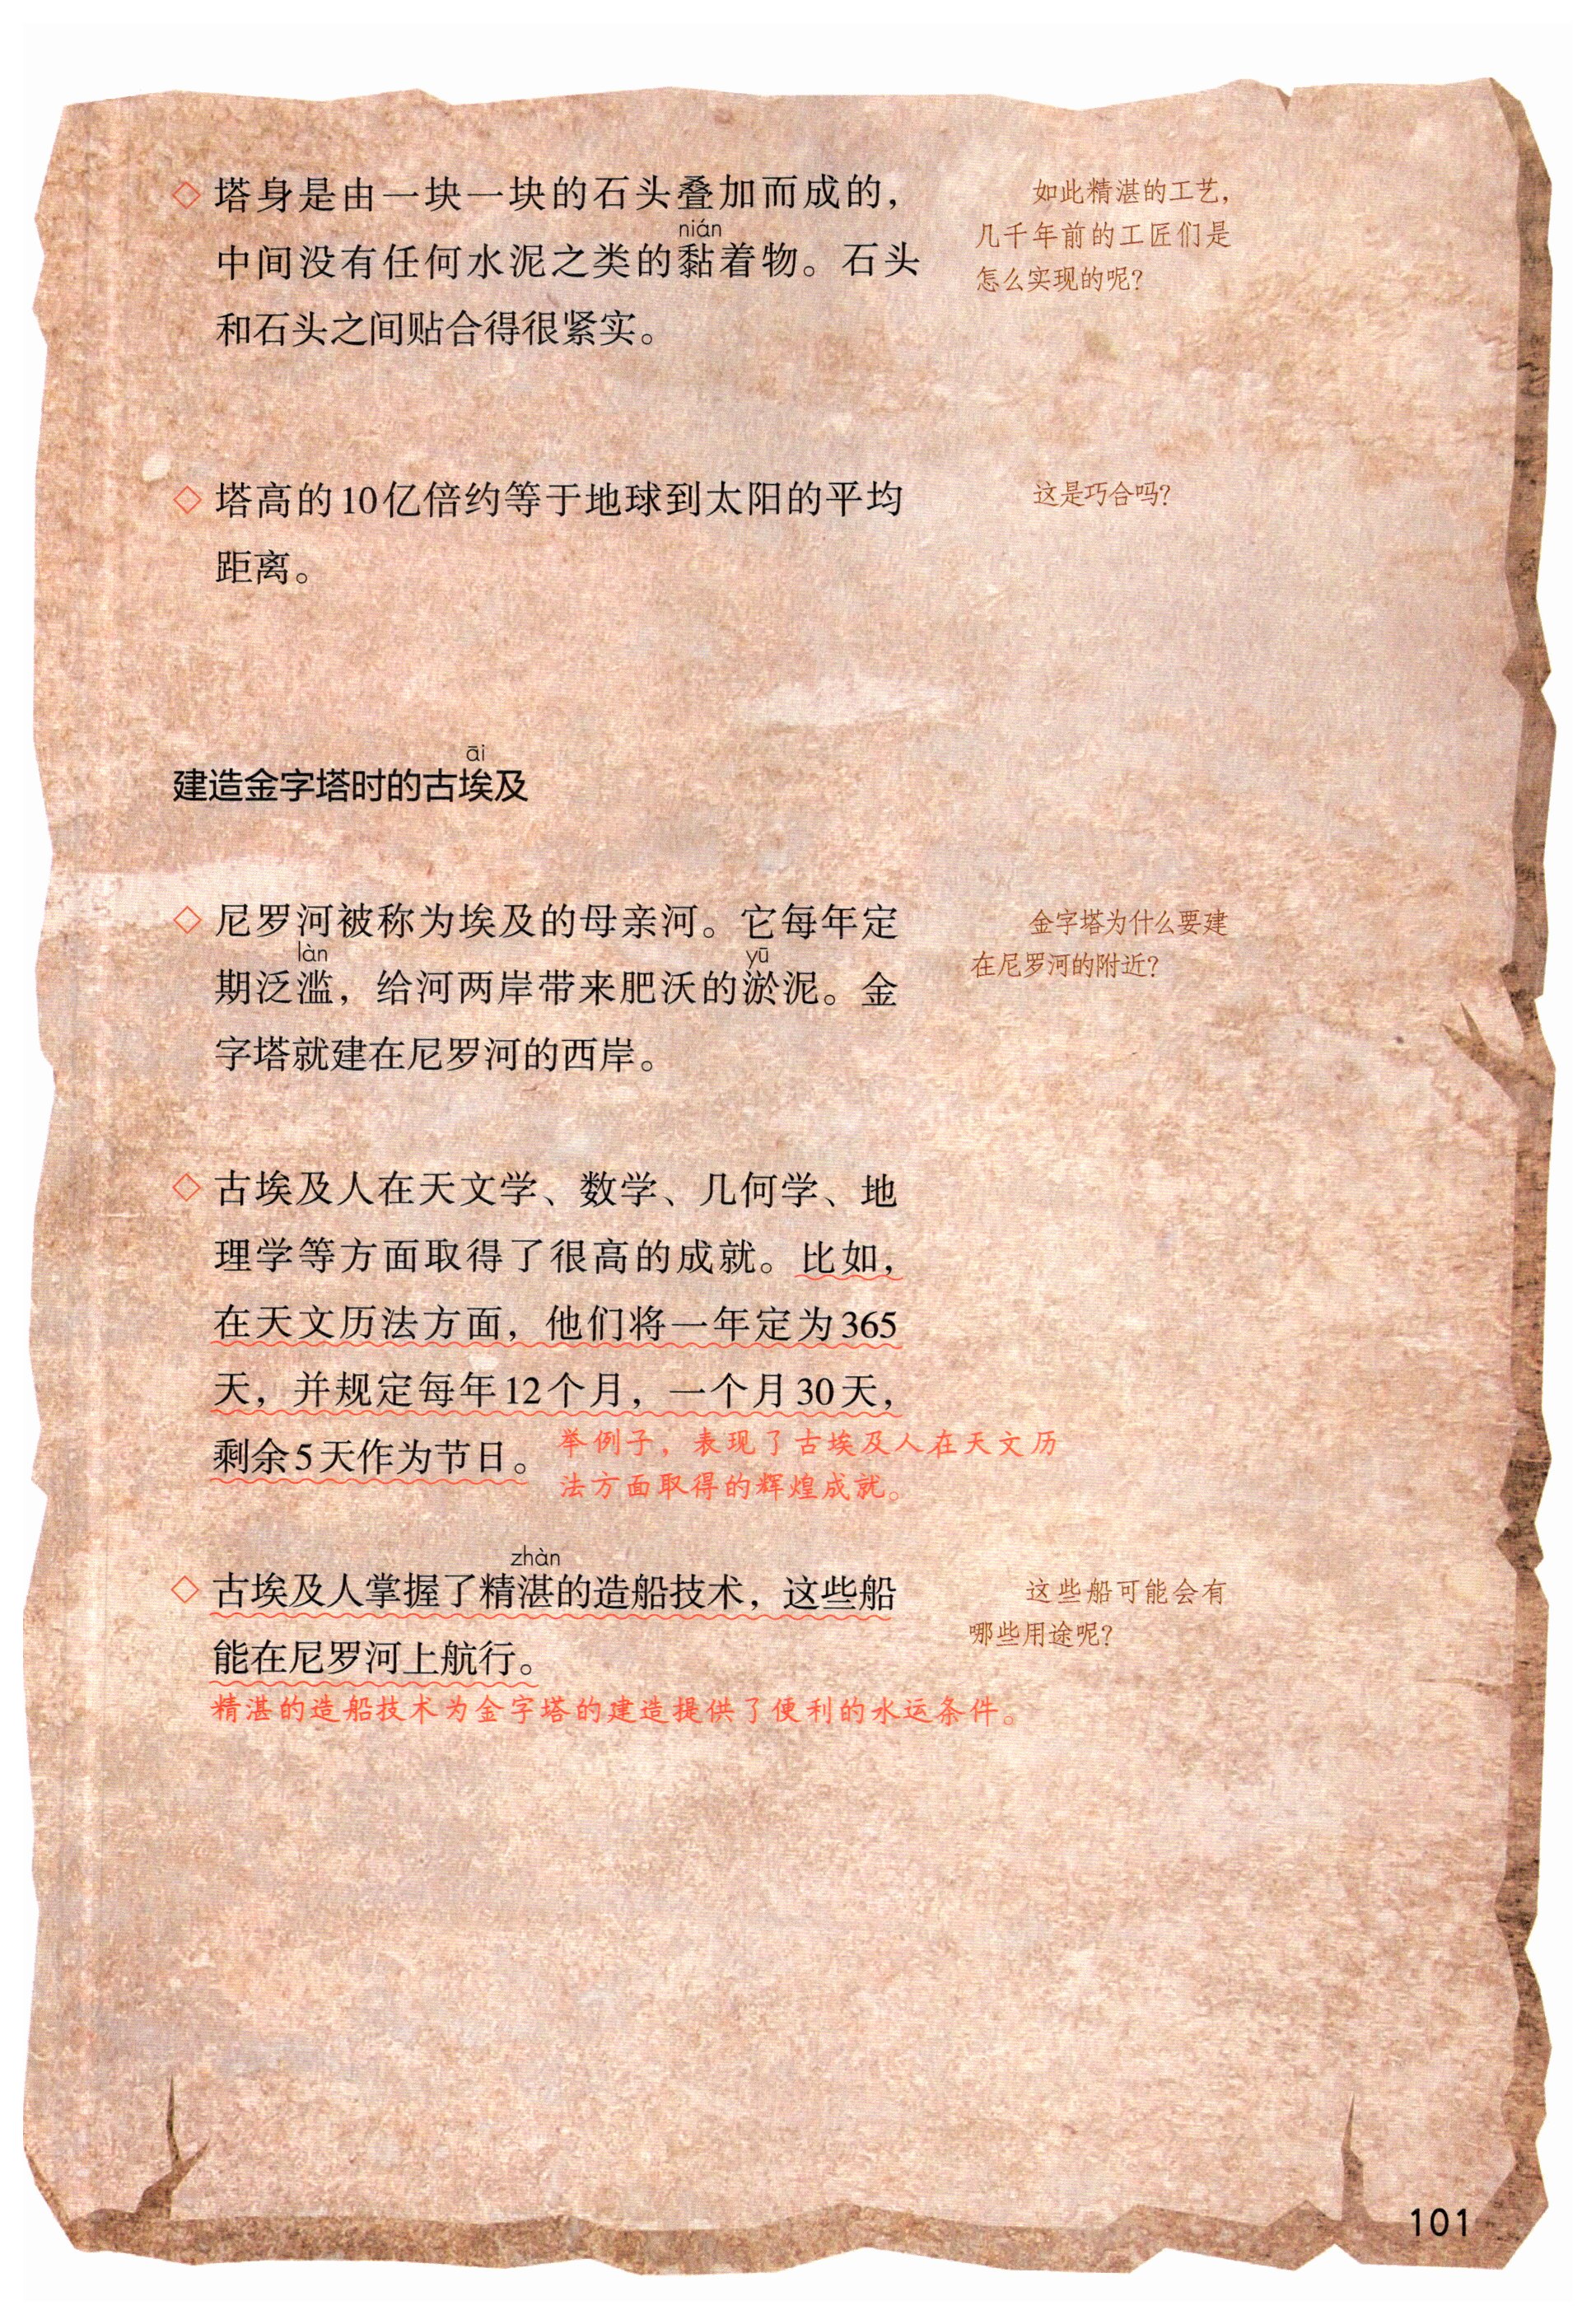 ◇ 塔身是由一块一块的石头叠加而成的，
nián
中间没有任何水泥之类的黏着物。石头
和石头之间贴合得很紧实。
如此精湛的工艺，
几千年前的工匠们是
怎么实现的呢？
◇ 塔高的10亿倍约等于地球到太阳的平均
距离。
这是巧合吗？
āi
建造金字塔时的古埃及
◇ 尼罗河被称为埃及的母亲河。它每年定
làn yū
期泛滥，给河两岸带来肥沃的淤泥。金
字塔就建在尼罗河的西岸。
金字塔为什么要建
在尼罗河的附近？
◇ 古埃及人在天文学、数学、几何学、地
理学等方面取得了很高的成就。比如，
在天文历法方面，他们将一年定为365
天，并规定每年12个月，一个月30天，
剩余5天作为节日。
举例子，表现了古埃及人在天文历
法方面取得的辉煌成就。
zhàn
◇ 古埃及人掌握了精湛的造船技术，这些船
能在尼罗河上航行。
精湛的造船技术为金字塔的建造提供了便利的水运条件。
这些船可能会有
哪些用途呢？
101